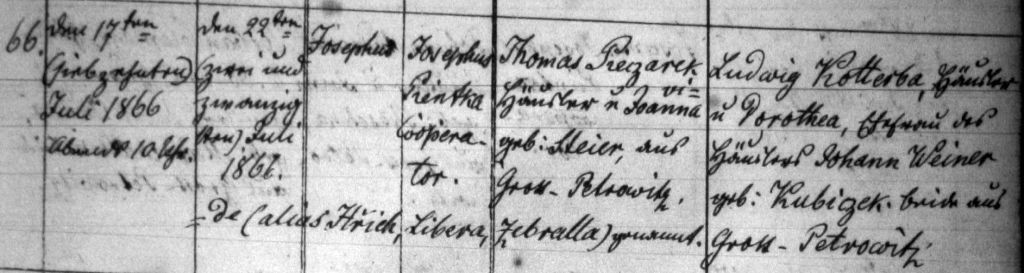 66.
den 17ten
(siebzehnten)
Juli 1866
Abends 10 Uhr.
den 22ten
(zwei und
zwanzig
sten) Juli
1866.
Josephus
Josephus
Pientka
Coopera-
tor.
Thomas Pieczarek
Häusler u Joanna
geb: Steier, aus
Gross-Petrowitz.
Ludwig Kotterba, Häusler
u Dorothea, Ehefrau des
Häuslers Johann Weiner
geb: Kubiczek. beide aus
Gross-Petrowitz
vi=
=de (alias Hřich, Libera, Zebralla) genannt.